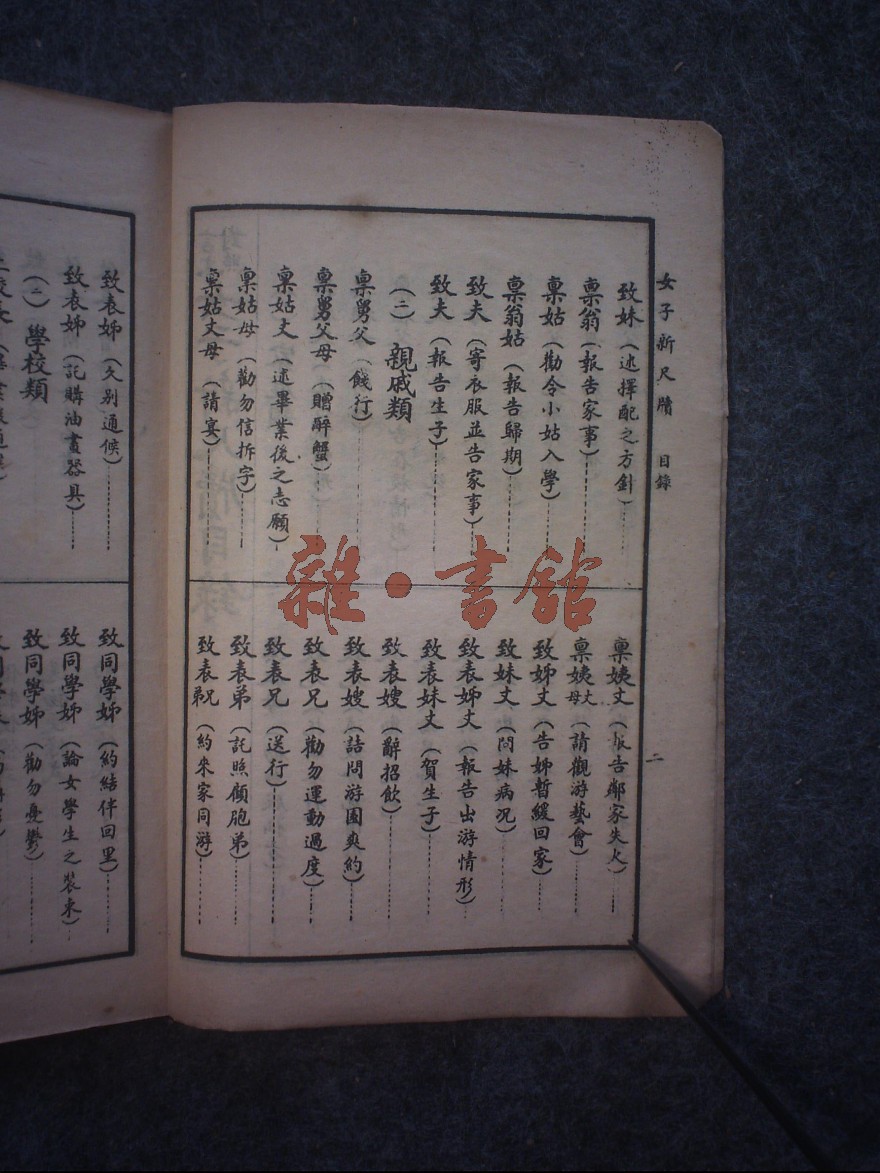 女子新尺牘 目錄
二
致妹(述擇配之方針)
稟翁(報告家事)
稟姑(勸令小姑入學)
稟翁姑(報告歸期)
致夫(寄衣服並告家事)
致夫(報告生子)
(二)親戚類
稟舅父(餞行)
稟舅父母(贈醉蟹)
稟姑丈(述畢業後之志願)
稟姑母(勸勿信拆字)
稟姑丈母(請宴)
稟姨丈(報告鄰家失火)
稟姨丈母(請觀游藝會)
致姊丈(告姊暫緩回家)
致妹丈(問妹病况)
致表姊丈(報告出游情形)
致表妹丈(賀生子)
致表嫂(辭招飲)
致表嫂(詰問游園爽約)
致表兄(勸勿運動過度)
致表兄(送行)
致表弟(託照顧胞弟)
致表兄弟(約來家同游)
致表姊(久别通候)
致表姊(託購油畫器具)
(二)學校類
致同學姊(約結伴回里)
致同學姊(論女學生之裝束)
致同學姊(勸勿憂鬱)
雜·書館